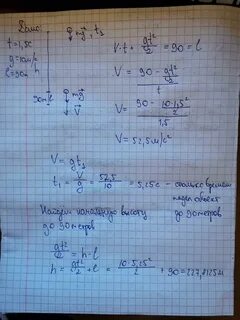 Дано:
t=1,5c
g=10м/с²
l=90м h
mg, t₁
90м l
mg
V
V·t + gt²/2 = 90 = l
V = (90 - gt²/2)/t
V = (90 - 10·1,5²/2)/1,5
V = 52,5 м/с²
V = gt₁
t₁ = V/g = 52,5/10 = 5,25c - сколько времени
падал объект
до 90 метров
Найдём начальную высоту
до 90 метров
gt²/2 = h-l
h = gt²/2 + l = 10·5,25²/2 + 90 = 227,8125м